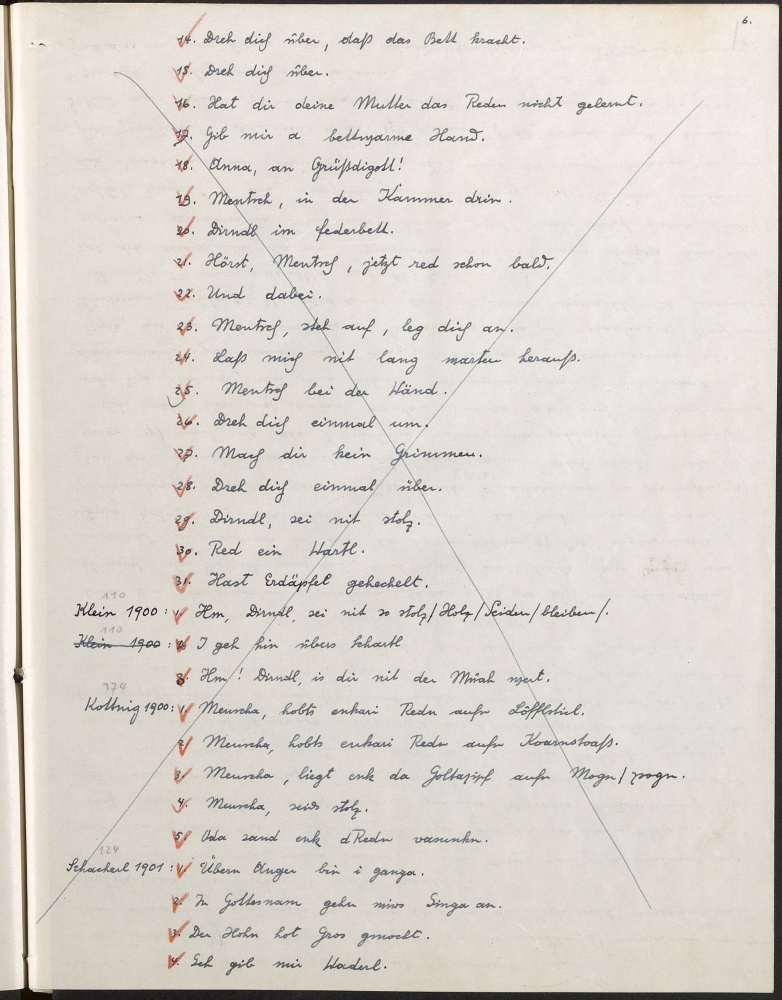 6.
14. Dreh dich über, daß das Bett kracht.
15. Dreh dich über.
16. Hat dir deine Mutter das Reden nicht gelernt.
17. Gib mir a bettwarme Hand.
18. Anna, an Grüßdigott!
19. Mentsch, in der Kammer drin.
20. Dirndl im Federbett.
21. Hörst, Mentsch, jetzt red schon bald.
22. Und dabei.
23. Mentsch, steh auf, leg dich an.
24. Laß mich nit lang warten herauß.
25. Mentsch bei der Wänd.
26. Dreh dich einmal um.
27. Mach dir kein Grimmen.
28. Dreh dich einmal über.
29. Dirndl, sei nit stolz.
30. Red ein Wartl.
31. Hast Erdäpfel gehechelt.
110
Klein 1900: 1. Hm, Dirndl, sei nit so stolz/Holz/Seiden/bleiben/.
110
Klein 1900: 2. I geh hin übers
3. Hm! Dirndl, is dir nit der Müah wert.
174
Kottnig 1900: 1. Menscha, hobts enkari Redn aufn Löfflstiel.
2. Menscha, hobts enkari Redn aufn Koarnstoaß.
3. Menscha, liegt enk da aufn Mogn/zogn.
4. Menscha, seids stolz.
5. Oda sand enk dRedn vasunkn.
124
Schacherl 1901: 1. Übern Anger bin i ganga.
2. In Gottesnam gehn miws Singa an.
3. Der Hohn hot Gros gmocht.
4. Geh gib mir Waderl.